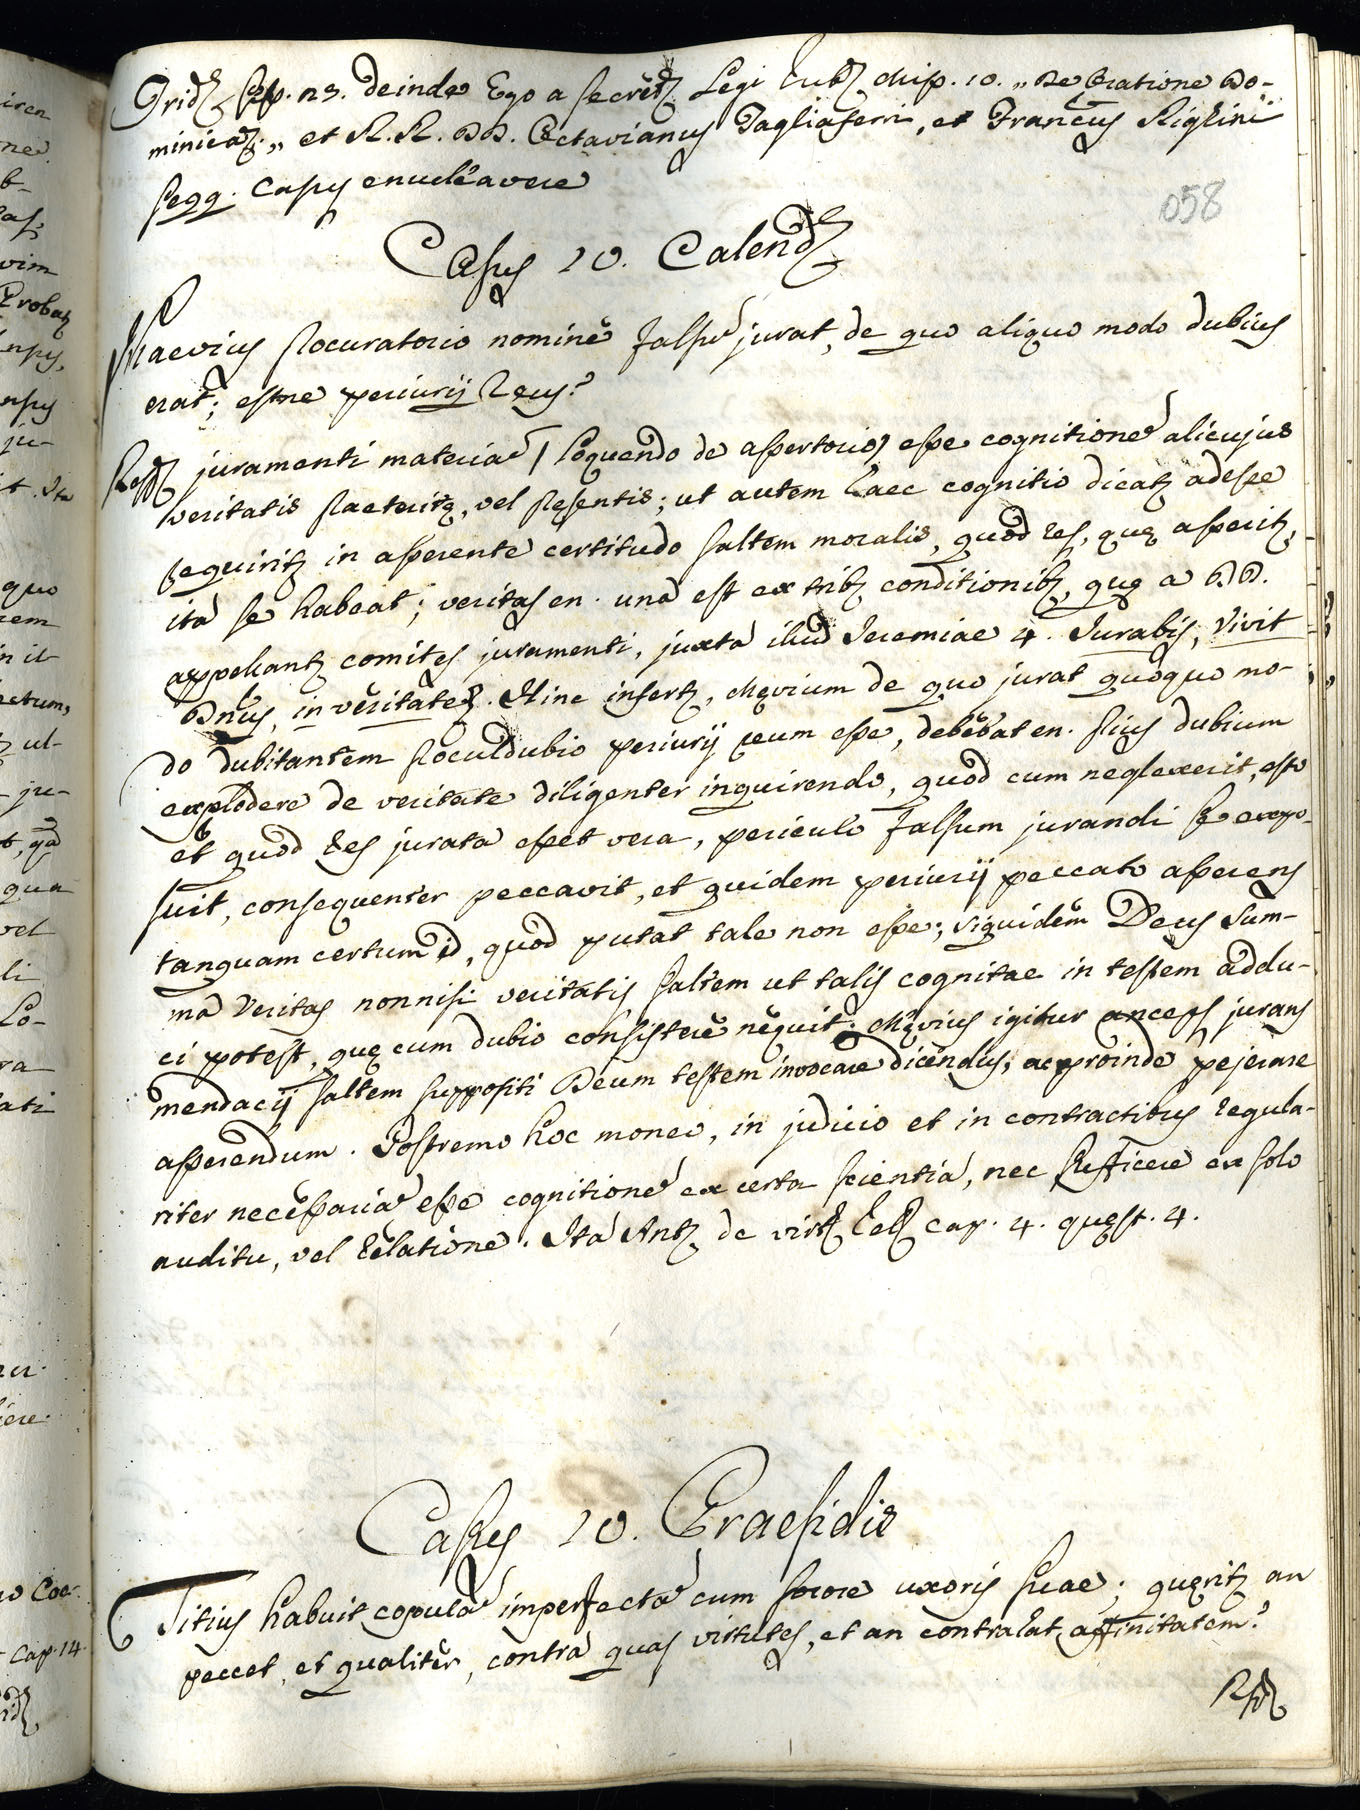 Trid. sess. 23. deinde Ego a secret. Legi Rub. Misc. 10. „ De Oratione Do-
minica „ et R. R. DD. Octavianus Tagliaferri, et Franc.us Righini
segg. Casus enucleavere
058
Casus 10. Calend.
Maevius procuratorio nomine falsu jurat, de quo aliquo modo dubius
erat; estne periurij Reus?
Resp. juramenti materia / loquendo de assertorio / esse cognitione alicujus
veritatis praeteritę, vel pręsentis; ut autem haec cognitio dicat. adesse
requirit. in asserente certitudo saltem moralis, quod res, quę asserit.
ita se habeat; veritas en. una est ex trib. conditionib., quę a DD.
appellant. comites juramenti, juxta illud Jeremiae 4. Jurabis, Vivit
Dnus, in veritate. Hinc infert., Męvium de quo jurat quoquo mo-
do dubitantem proculdubio periurij reum esse, debebat en. prius dubium
explodere de veritate diligenter inquirendo, quod cum neglexerit, esto
et quod res jurata esset vera, periculo falsum jurandi se expo-
suit, consequenter peccavit, et quidem periurij peccato asserens
tanquam certum id, quod putat tale non esse; siquidem Deus sum-
ma Veritas nonnisi veritatis saltem ut talis cognitae in testem addu-
ci potest, quę cum dubio consistere nequit; Męvius igitur anceps jurans
mendacij saltem suppositi Deum testem invocare dicendus, ac proinde pejerare
asserendum. Postremo hoc moneo, in judicio et in contractibus regula-
riter necessaria esse cognitione ex certa scientia, nec sufficere ex solo
auditu, vel relatione. Ita Ant. de virt. Rel. cap. 4. quęst. 4.
Casus 10. Praesidis
Titius habuit copula imperfecta cum sorore uxoris suae; quęrit. an
peccet, et qualiter, contra quas virtutes, et an contrahat affinitatem?
Rp.